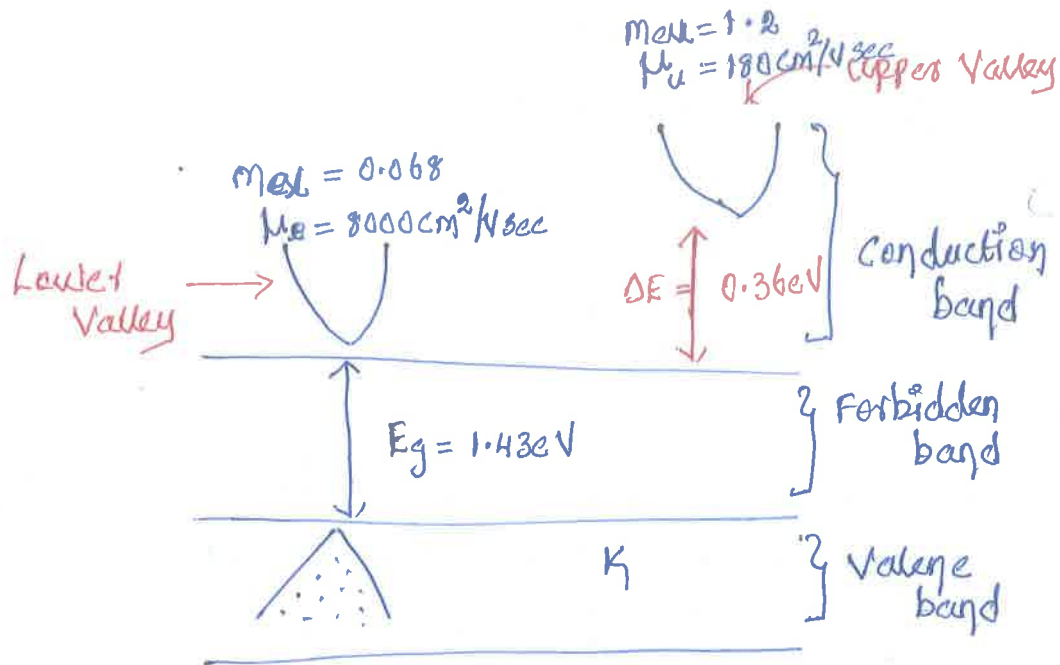 meu = 1.2
μu = 180cm²/Vsec
Upper Valley
mel = 0.068
μe = 8000cm²/Vsec
Lower
Valley
ΔE = 0.36eV
Conduction
band
Eg = 1.43eV
Forbidden
band
K
Valene
band